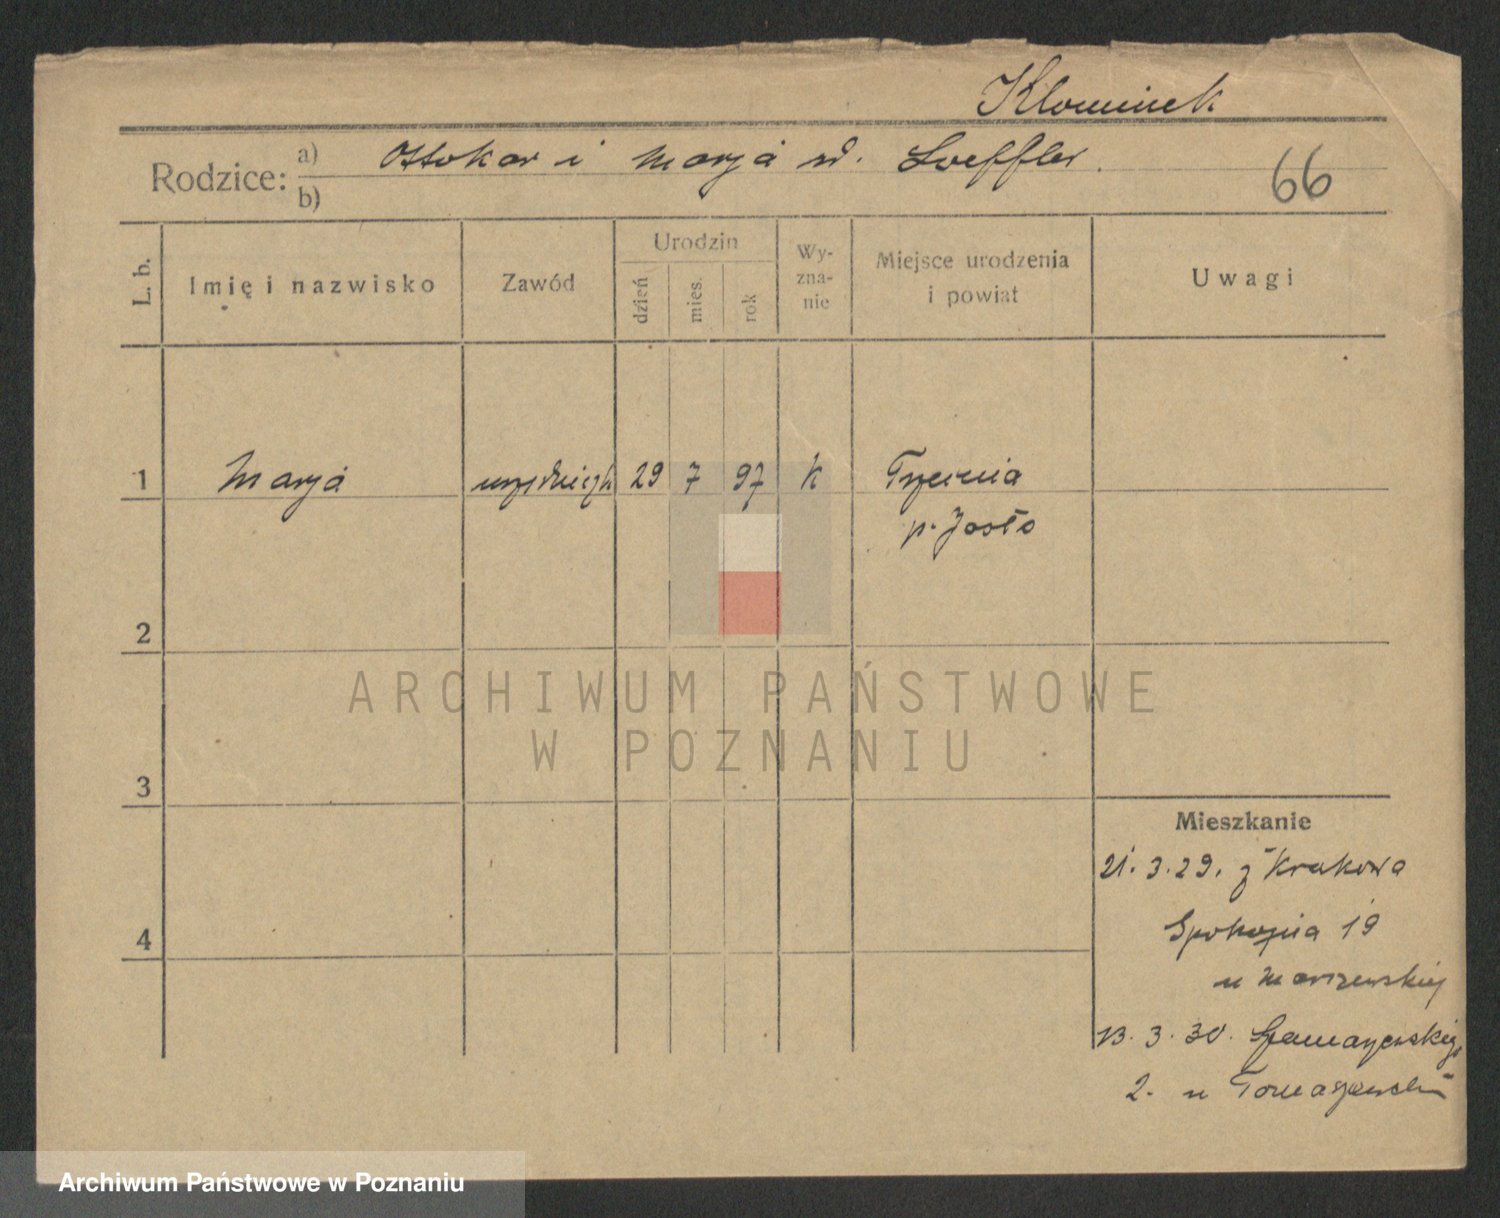 Klominek
Rodzice: a) Ottokar i Marja zd. Loeffler.
b)
66
L. b. Imię i nazwisko Zawód Urodzin dzień mies. rok Wyznanie Miejsce urodzenia i powiat Uwagi
1 Marja 29 7 97 k
p. Jasło
2
ARCHIWUM PAŃSTWOWE
W POZNANIU
3
Mieszkanie
21. 3. 29. z Krakowa
Spokojna 19
u Marszewskiej
4
13. 3. 30. Szamarzewskiego
2. u
Archiwum Państwowe w Poznaniu